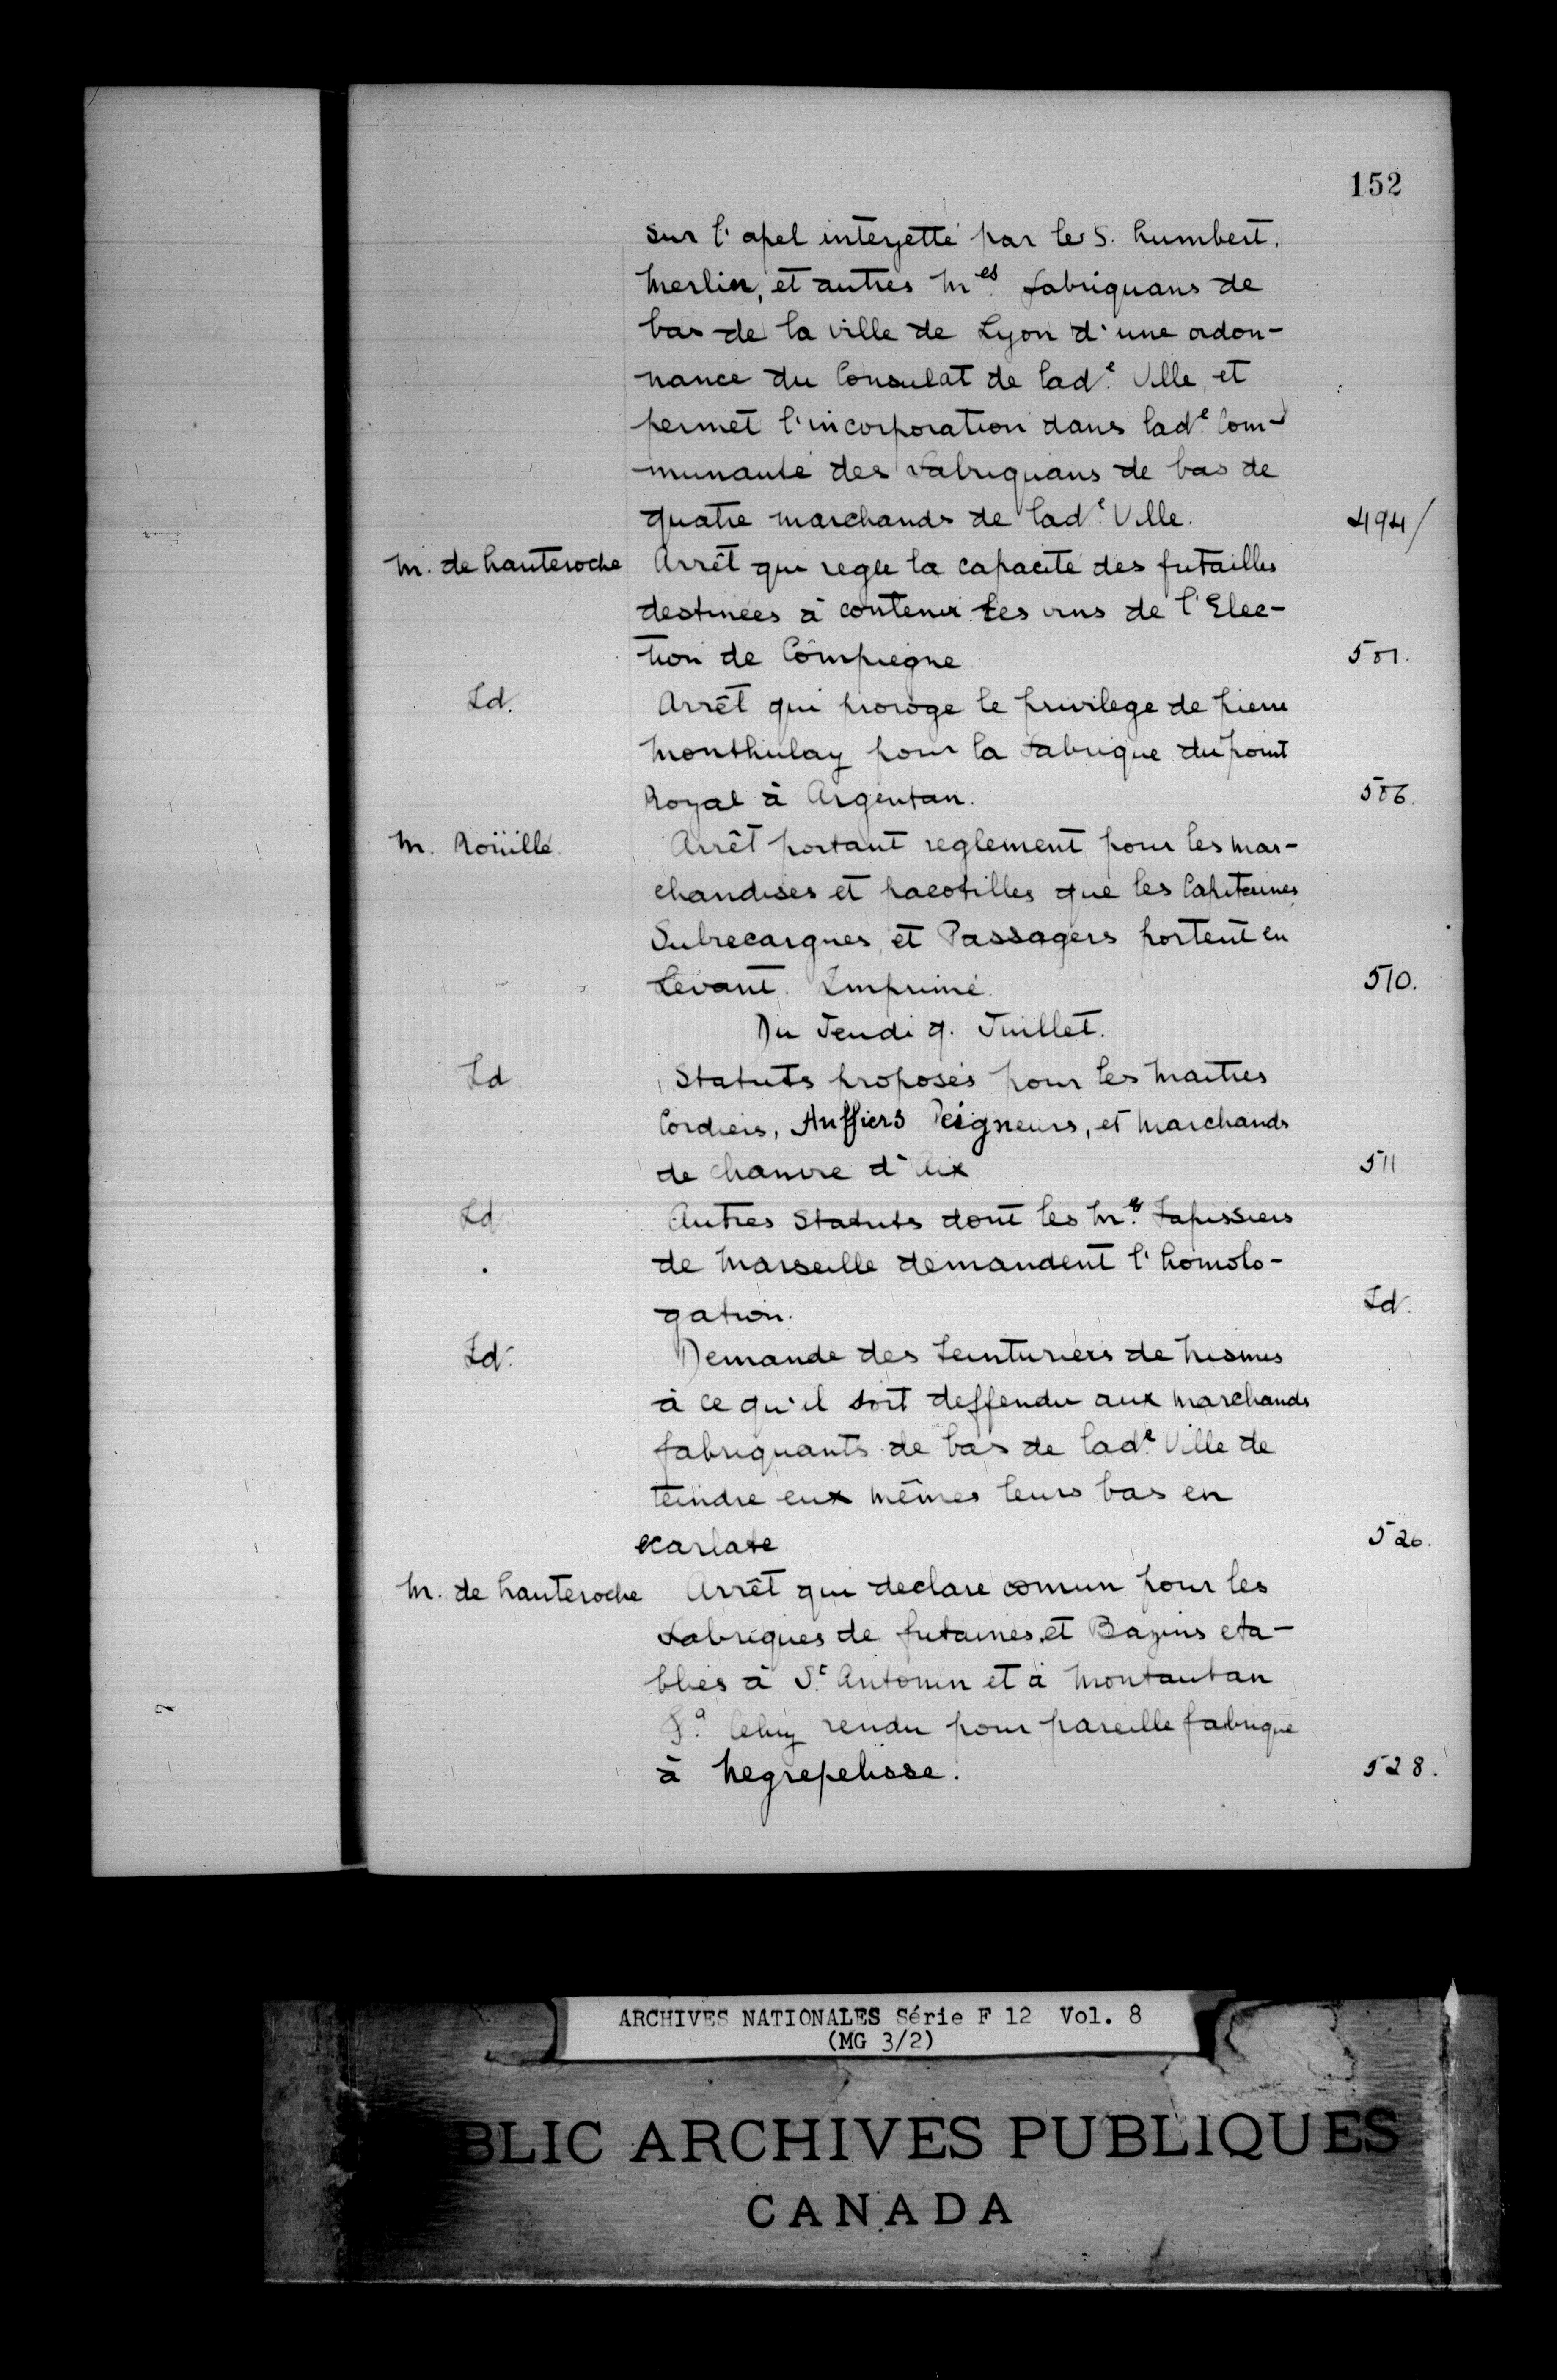 152
sur l'apel interjetté par les S. humbert.
Merlin, et autres M.es fabriquans de
bas de la ville de Lyon d'une ordon-
nance du Consulat de lad.e Ville, et
permet l'incorporation dans lad.e Com-
munauté des fabriquans de bas de
quatre marchands de lad.e Ville. 494/
M. de hauteroche Arrêt qui regle la capacité des futailles
destinées à contenir les vins de l'Elec-
tion de Compiegne 501.
Id. Arrêt qui proroge le privilege de pierre
Monthulay pour la fabrique du point
Royal à Argentan. 506.
M. Roüillé. Arrêt portant reglement pour les Mar-
chandises et pacotilles que les Capitaines
Subrecargues, et Passagers portent en
Levant. Imprimé. 510.
Du Jeudi 9. Juillet.
Id. Statuts proposés pour les Maitres
Cordiers, Auffiers Peigneurs, et Marchands
de chanvre d'Aix 511.
Id. Autres Statuts dont les M.es Tapissiers
de Marseille demandent l'homolo-
gation. Id.
Id. Demande des teinturiers de Nismes
à ce qu'il soit deffendu aux Marchands
fabriquants de bas de lad.e Ville de
teindre eux mêmes leurs bas en
ecarlate 526.
M. de hauteroche Arrêt qui declare comun pour les
fabriques de futaines, et Bazins eta-
blies à S.t Antonin et à Montauban
celuy rendu pour pareille fabrique
à Negrepelisse. 528.
ARCHIVES NATIONALES Série F 12 Vol. 8
(MG 3/2)
BLIC ARCHIVES PUBLIQUES
CANADA